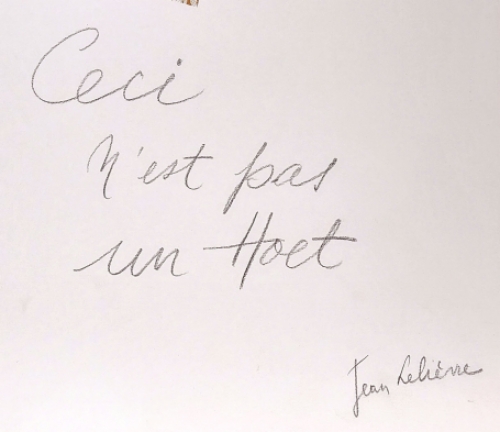 Ceci
n'est pas
un Hoet
Jean Lelièvre